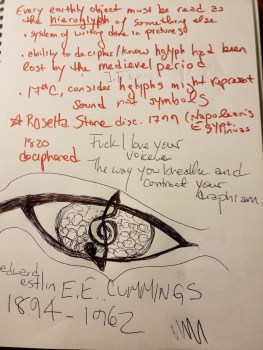 Every earthly object must be read as
the hieroglyph of something else
• system of writing done in pictures
• ability to decipher/know hglyph had been
lost by the medievel period
• 17th C, consider hglyphs might represent
sound not symbols
Rosetta Stone disc. 1799 (Napoleon's
Egypt.
1820
deciphered
Fuck I love your
The way you breathe and
contract your
diaphram.
edward
estlin E.E. CUMMINGS
1894-1962